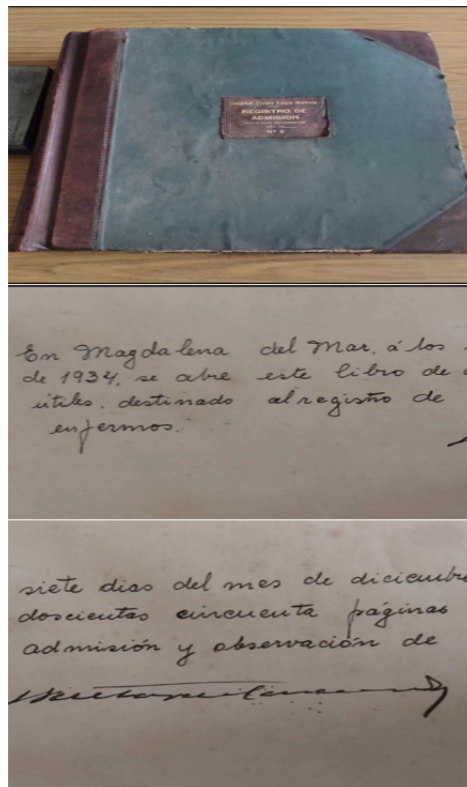 REGISTRO DE
ADMISION
Nº 2
En Magdalena del Mar, á los
de 1934, se abre este libro de
útiles, destinado al registro de
enfermos.
siete dias del mes de diciembre
doscientas cincuenta páginas
admisión y observación de